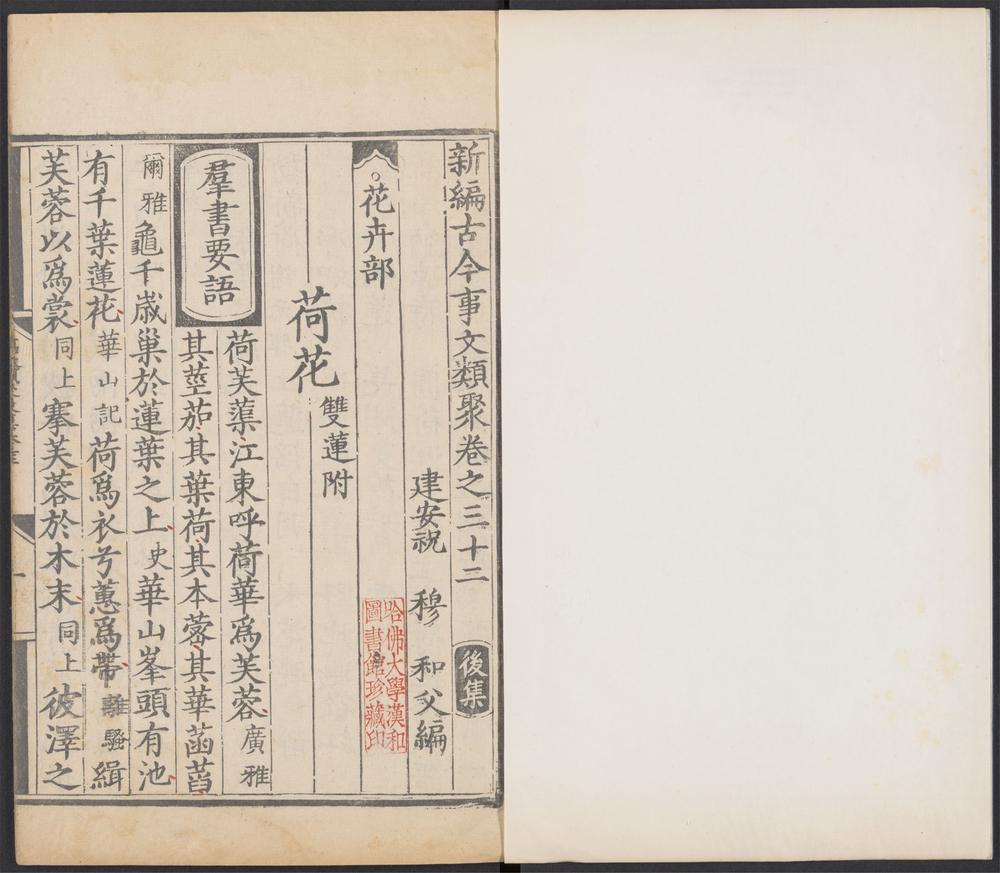 新編古今事文類聚卷之三十二
後集
建安祝　穆　和父編
哈佛大學漢和
圖書館珍藏印
花卉部
荷花
雙蓮附
羣書要語
荷芙蕖江東呼荷華爲芙蓉廣雅
其莖茄其葉荷其本蔤其華菡萏
爾雅龜千歲巢於蓮葉之上史華山峯頭有池
有千葉蓮花華山記荷爲衣兮蕙爲帶離騷緝
芙蓉以爲裳同上搴芙蓉於木末同上彼澤之
一